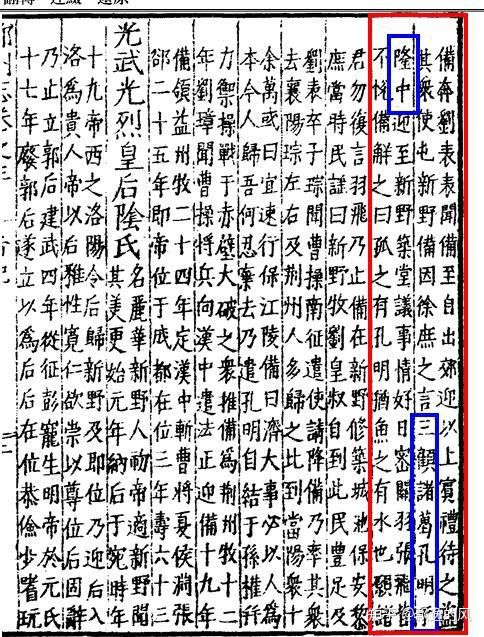 備奔劉表表聞備至自出郊迎以上賓禮待之益
其衆使屯新野備因徐庶之言三顧諸葛孔明
隆中迎至新野築堂議事情好日密關羽張飛皆
不悅備解之曰孤之有孔明猶魚之有水也願諸
君勿復言羽飛乃止備在新野修築城池保安黎
庶當時民謠曰新野牧劉皇叔自到此民豐足及
劉表卒子琮聞曹操南征遣使請降備乃率衆
去襄陽琮左右及荊州人多歸之比到當陽衆十
餘萬或曰宜速行保江陵備曰濟大事必以人為
本今人歸吾何忍棄去乃遣孔明自結于孫權并
力禦操戰于赤壁大破之衆推備為荊州牧十二
年劉璋聞曹操將兵向漢中遣法正迎備十九年
備領益州牧二十四年定漢中斬曹將夏侯淵張
郃二十五年即帝位于成都在位三年壽六十三
光武光烈皇后陰氏
名麗華新野人初帝適新野聞
其美更始元年納后于宛時年
十九帝西之洛陽令后歸新野及即位乃迎后入
洛為貴人帝以后雅性寬仁欲崇以尊位后固辭
乃止立郭后建武四年從征彭寵生明帝於元氏
十七年廢郭后遂立以為后后在位恭儉少嗜玩